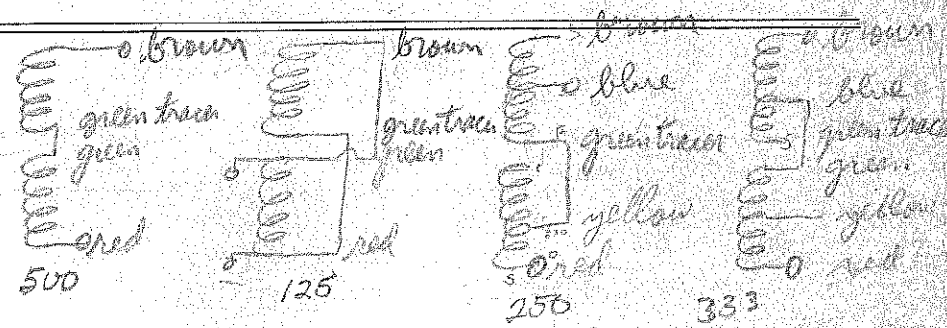 brown
green tracer
green
red
500
brown
green tracer
green
red
125
brown
blue
green tracer
yellow
red
s
250
brown
blue
green trace
green
yellow
red
333